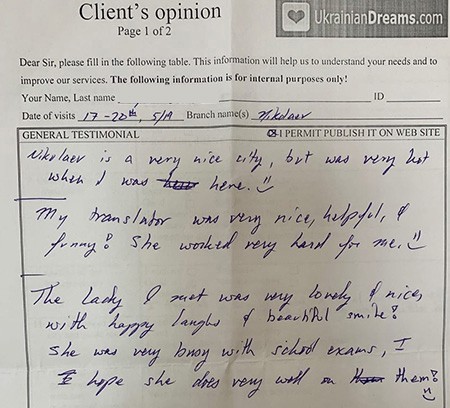 Client's opinion
Page 1 of 2
UkrainianDreams.com
Dear Sir, please fill in the following table. This information will help us to understand your needs and to
improve our services. The following information is for internal purposes only!
Your Name, Last name ID
Date of visits 17-20th, 5/19 Branch name(s) Nikolaev
GENERAL TESTIMONIAL I PERMIT PUBLISH IT ON WEB SITE
Nikolaev is a very nice city, but was very hot
when I was here.
My translator was very nice, helpful, &
funny! She worked very hard for me.
The Lady I met was very lovely & nice,
with happy laughs & beautiful smile!
She was very busy with school exams, I
I hope she does very well on them!